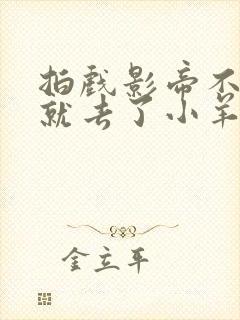 拍戏影帝不
就去了小羊
金立平